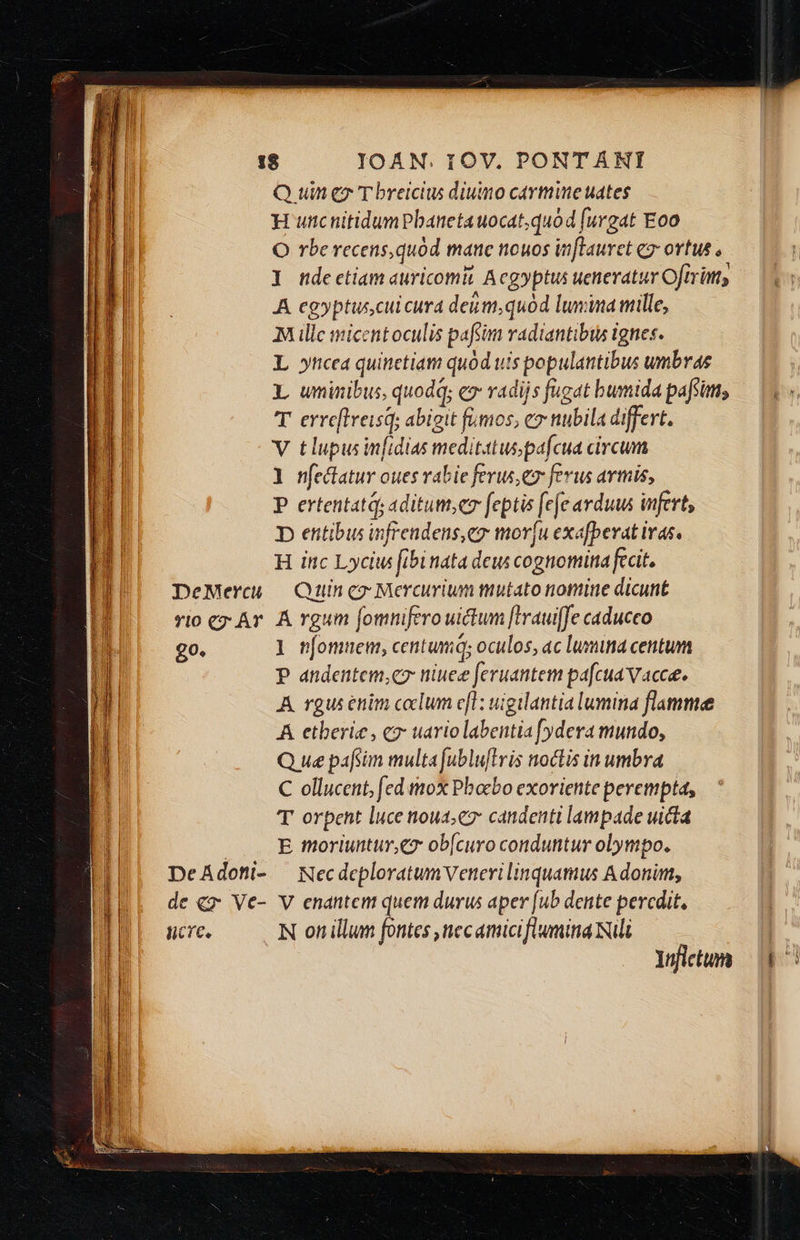 18 IOAN. IOV. PONTANI
Q uin & Threicius diuino carmine uates
H unc nitidum Phaneta uocat, quòd ſurgat Eoo
O rbe recens, quòd mane nouos inſtauret & ortus.
I nde etiam auricomū Aegyptus ueneratur Oſirim,
A egyptus, cui cura deūm, quòd lumina mille,
M ille micent oculis paſsim radiantibus ignes.
L yncea quinetiam quòd uis populantibus umbras
L uminibus, quodq; & radijs fugat humida paſsim,
T erreſtreisq; abigit fumos, & nubila differt.
V t lupus inſidias meditatus, paſcua circum
I nſectatur oues rabie ferus, & ferus armis,
P ertentatq; aditum, & ſeptis ſeſe arduus infert,
D entibus infrendens, & morſu exaſperat iras.
H inc Lycius ſibi nata deus cognomina fecit.
DeMercu Quin & Mercurium mutato nomine dicunt
rio & Ar A rgum ſomnifero uictum ſtrauiſſe caduceo
go. I nſomnem, centumq; oculos, ac lumina centum
P andentem, & niueæ ſeruantem paſcua Vaccæ.
A rgus enim cœlum eſt: uigilantia lumina flammæ
A etheriæ, & uario labentia ſydera mundo,
Q uæ paſsim multa ſubluſtris noctis in umbra
C ollucent, ſed mox Phœbo exoriente perempta,
T orpent luce noua, & candenti lampade uicta
E moriuntur, & obſcuro conduntur olympo.
De Adoni- Nec deploratum Veneri linquamus Adonim,
de & Ve- V enantem quem durus aper ſub dente peredit.
nere. N on illum fontes, nec amici flumina Nili
Infletum